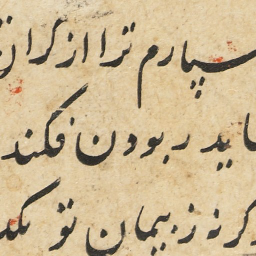 سپارم ترا از کران
باید ربودن فکند
گر نه ز پیمان تو بگذ